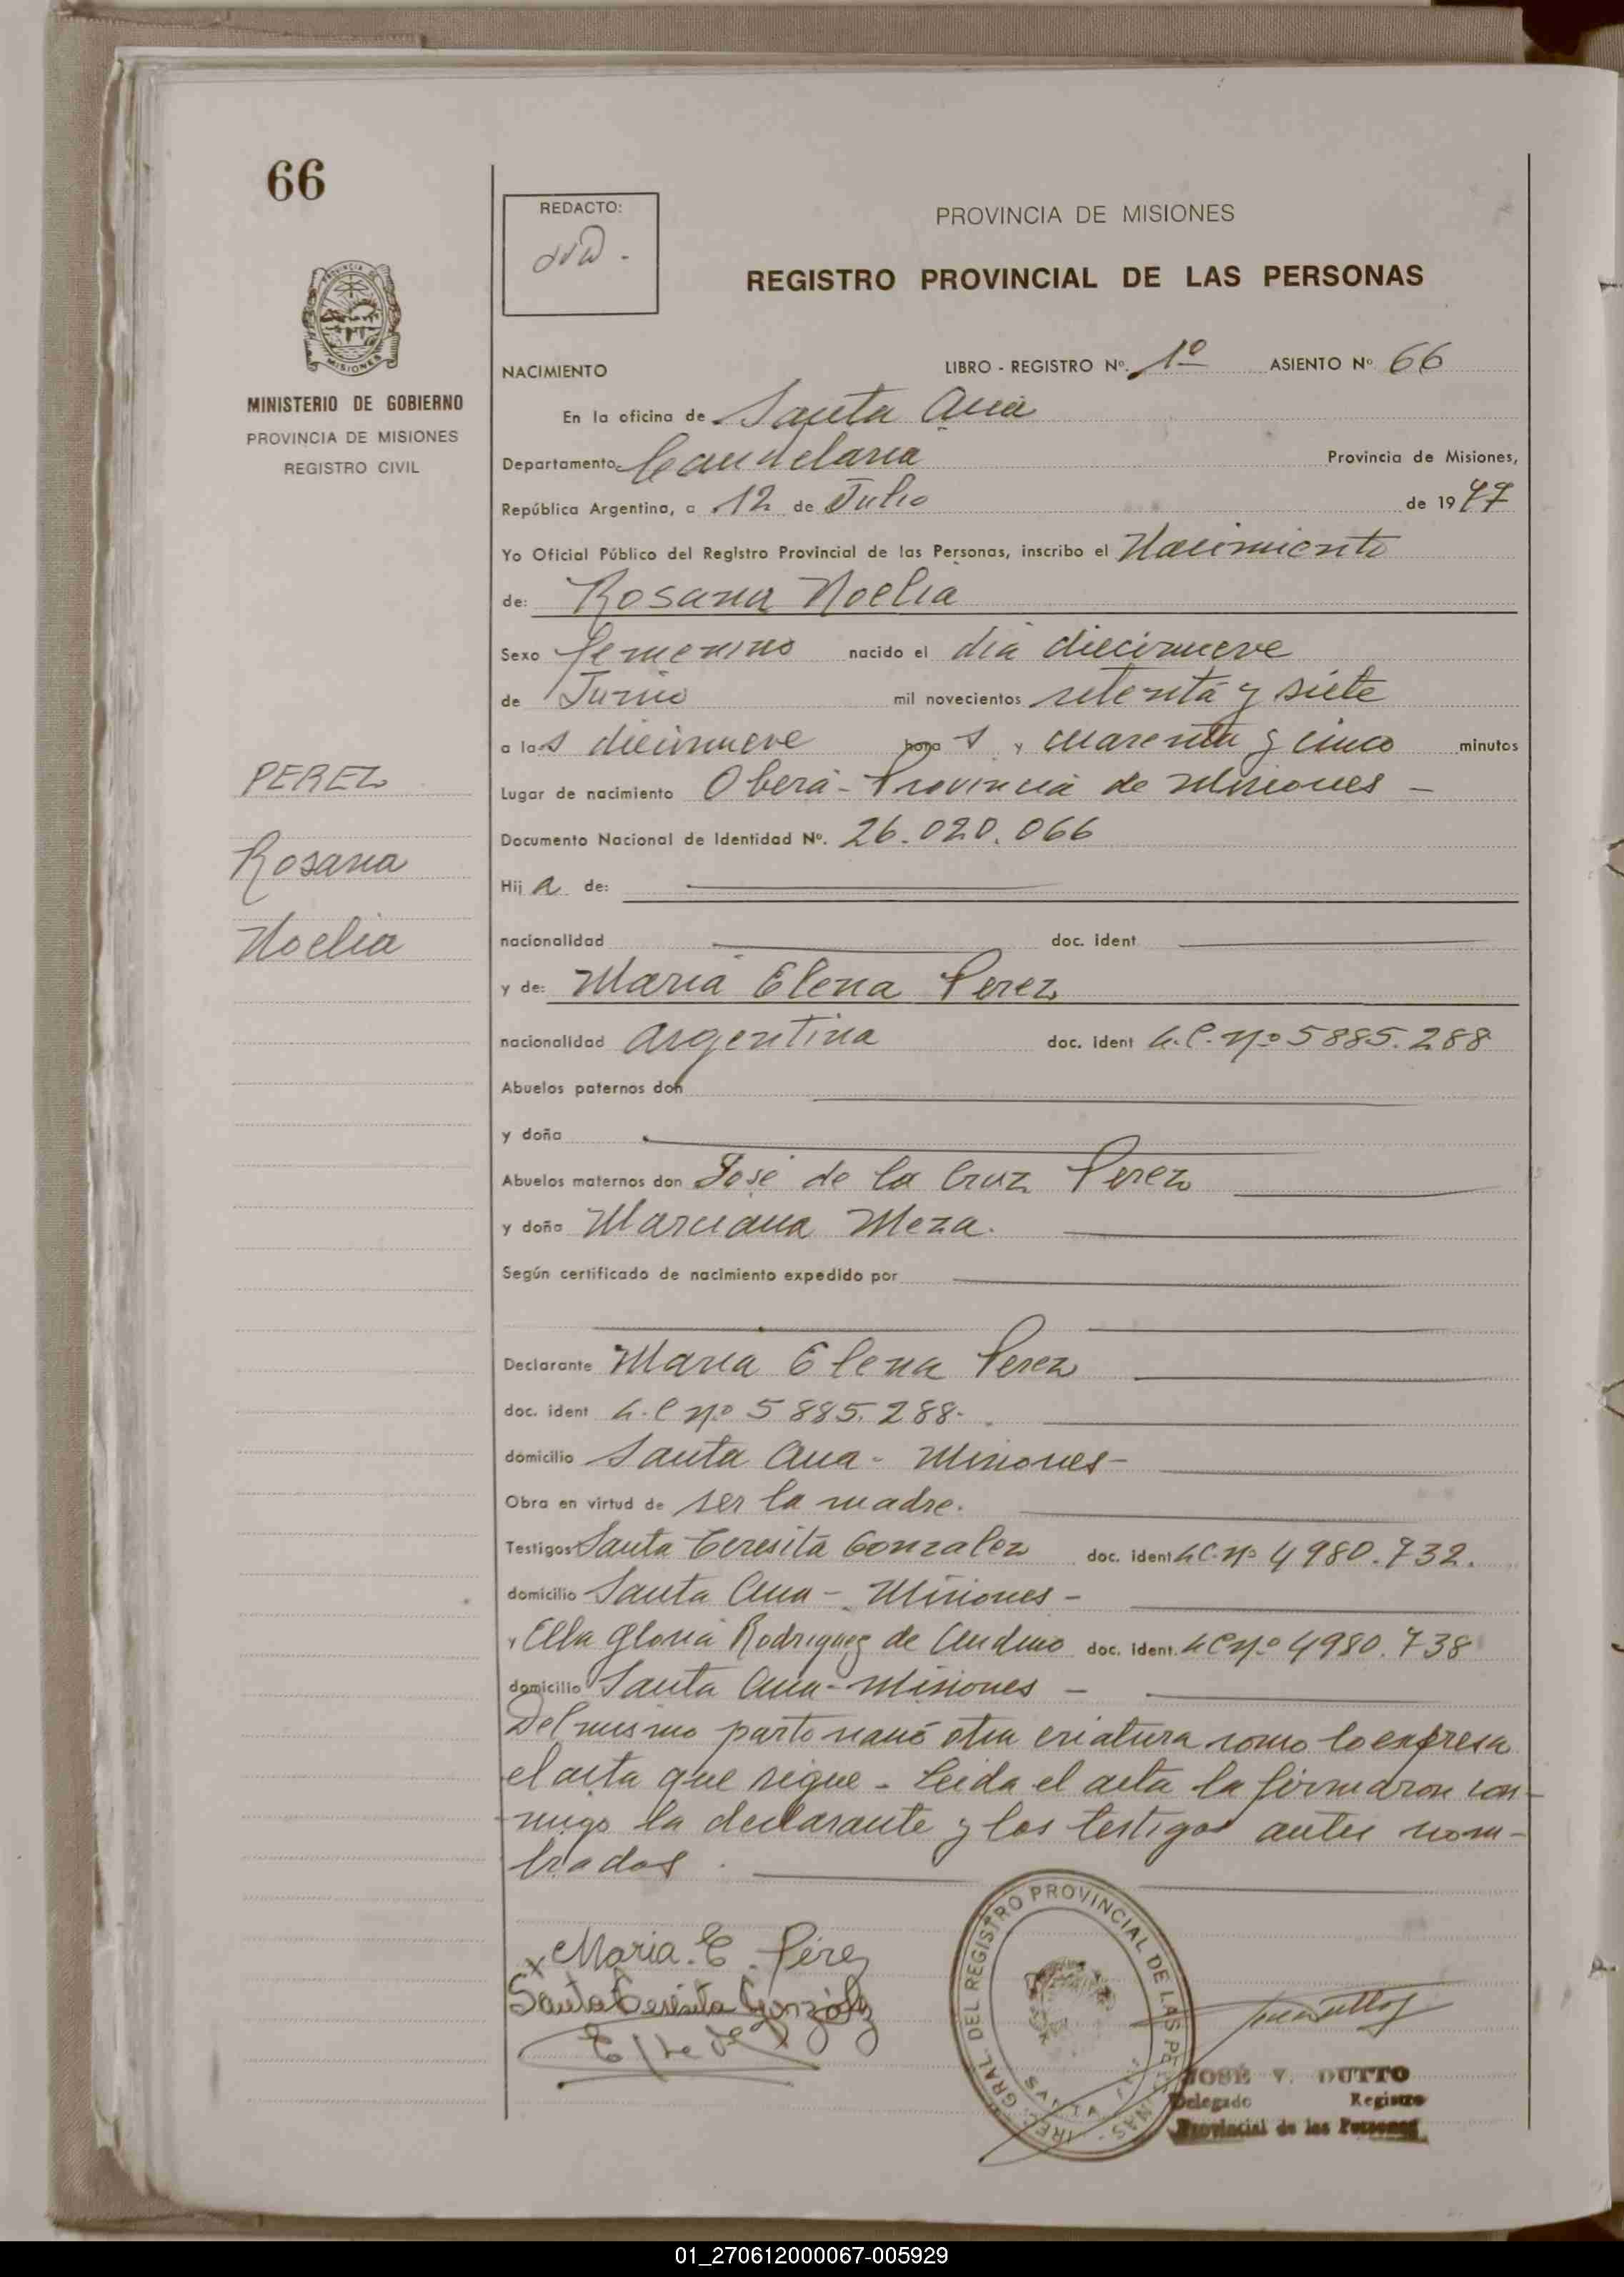 66
REDACTO:
PROVINCIA DE MISIONES
REGISTRO PROVINCIAL DE LAS PERSONAS
PROVINCIA DE
MISIONES
MINISTERIO DE GOBIERNO
PROVINCIA DE MISIONES
REGISTRO CIVIL
NACIMIENTO LIBRO - REGISTRO Nº. 1º ASIENTO Nº 66
En la oficina de Santa Ana
Departamento Candelaria Provincia de Misiones,
República Argentina, a 12 de Julio de 1977
Yo Oficial Público del Registro Provincial de las Personas, inscribo el Nacimiento
de: Rosana Noelia
Sexo femenino nacido el día diecinueve
de Junio mil novecientos setenta y siete
a las diecinueve hora s y cuarenta y cinco minutos
PEREZ
Rosana
Noelia
Lugar de nacimiento Oberá - Provincia de Misiones -
Documento Nacional de Identidad Nº. 26.020.066
Hij a de:
nacionalidad doc. ident
y de: Maria Elena Perez
nacionalidad argentina doc. ident L.C. Nº 5885.288
Abuelos paternos don
y doña
Abuelos maternos don José de la Cruz Perez
y doña Marciana Meza.
Según certificado de nacimiento expedido por
Declarante Maria Elena Perez
doc. ident L.C Nº 5885.288.
domicilio Santa Ana - Misiones -
Obra en virtud de ser la madre.
Testigos Santa Teresita Gonzalez doc. ident L.C. Nº 4980.732.
domicilio Santa Ana - Misiones -
y Elba Gloria Rodriguez de Andino doc. ident. L C Nº 4980.738
domicilio Santa Ana - Misiones -
Del mismo parto nació otra criatura como lo expresa
el acta que sigue - Leida el acta la firmaron con-
migo la declarante y los testigos antes nom-
brados.
x Maria. E. Pérez
Santa Teresita González
GRAL. DEL REGISTRO PROVINCIAL DE LAS PERSONAS
JOSÉ V. DUTTO
Delegado Registro
Provincial de las Personas
01_270612000067-005929